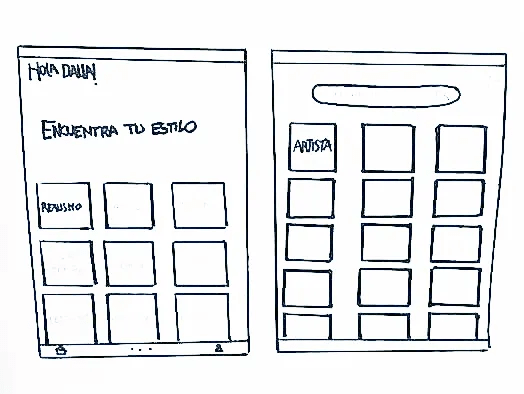 HOLA DALIA!
ENCUENTRA TU ESTILO
REALISMO
ARTISTA